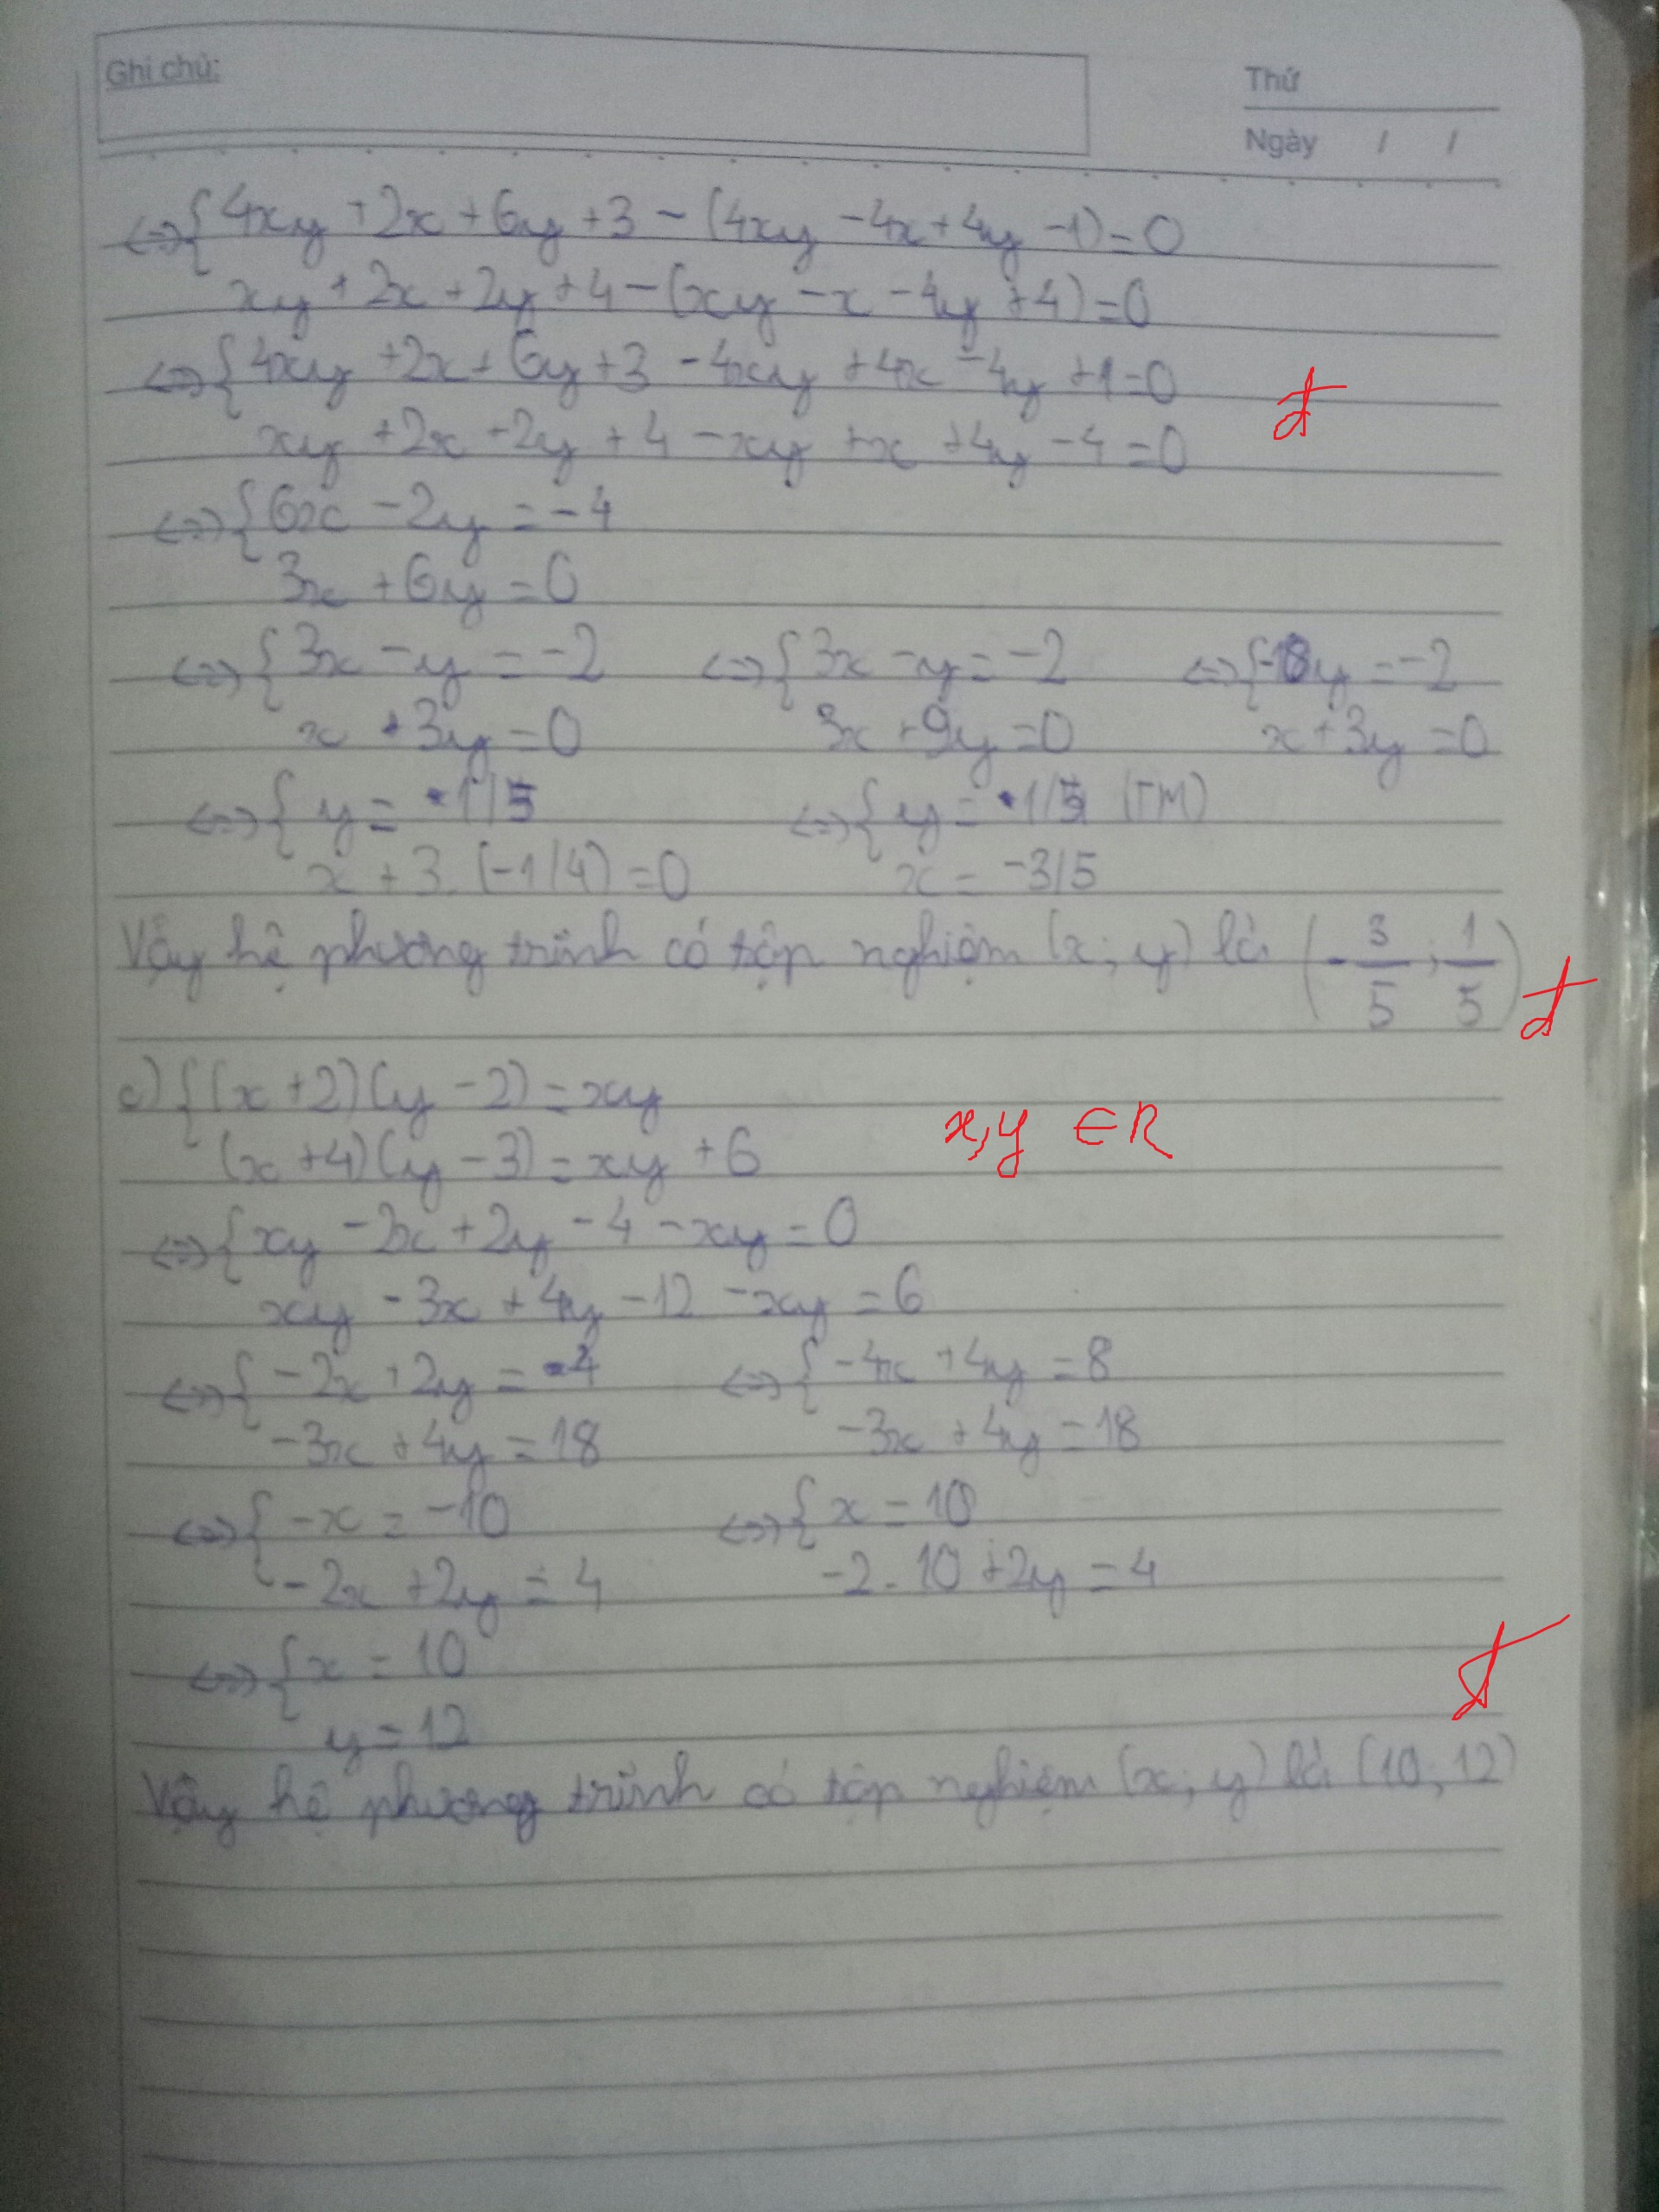 Ghi chú:
Thứ
Ngày / /
<=> { 4xy + 2x + 6y + 3 - (4xy - 4x + 4y - 1) = 0
xy + 2x + 2y + 4 - (xy - x - 4y + 4) = 0
<=> { 4xy + 2x + 6y + 3 - 4xy + 4x - 4y + 1 = 0
đ
xy + 2x + 2y + 4 - xy + x + 4y - 4 = 0
<=> { 6x - 2y = -4
3x + 6y = 0
<=> { 3x - y = -2 <=> { 3x - y = -2 <=> { -10y = -2
x + 3y = 0 3x + 9y = 0 x + 3y = 0
<=> { y = 1/5 <=> { y = 1/5 (TM)
x + 3. (-1/4) = 0 x = -3/5
Vậy hệ phương trình có tập nghiệm (x; y) là (-3/5; 1/5)
đ
c) { (x + 2)(y - 2) = xy
x,y ∈ R
(x + 4)(y - 3) = xy + 6
<=> { xy - 2x + 2y - 4 - xy = 0
xy - 3x + 4y - 12 - xy = 6
<=> { -2x + 2y = 4 <=> { -4x + 4y = 8
-3x + 4y = 18 -3x + 4y = 18
<=> { -x = -10 <=> { x = 10
-2x + 2y = 4 -2. 10 + 2y = 4
<=> { x = 10
đ
y = 12
Vậy hệ phương trình có tập nghiệm (x; y) là (10; 12)